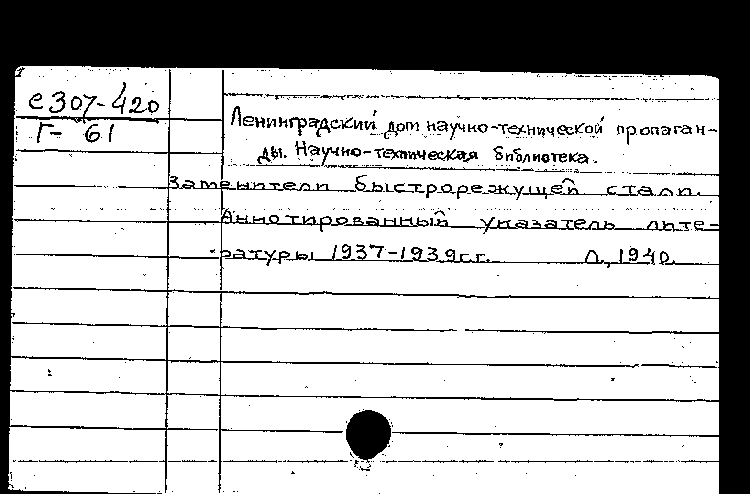 е307-420
Г-61
Ленинградский дом научно-технической пропаган-
ды. Научно-техническая библиотека.
Заменители быстрорежущей стали.
Аннотированный указатель лите-
ратуры 1937-1939гг. Л., 1940.